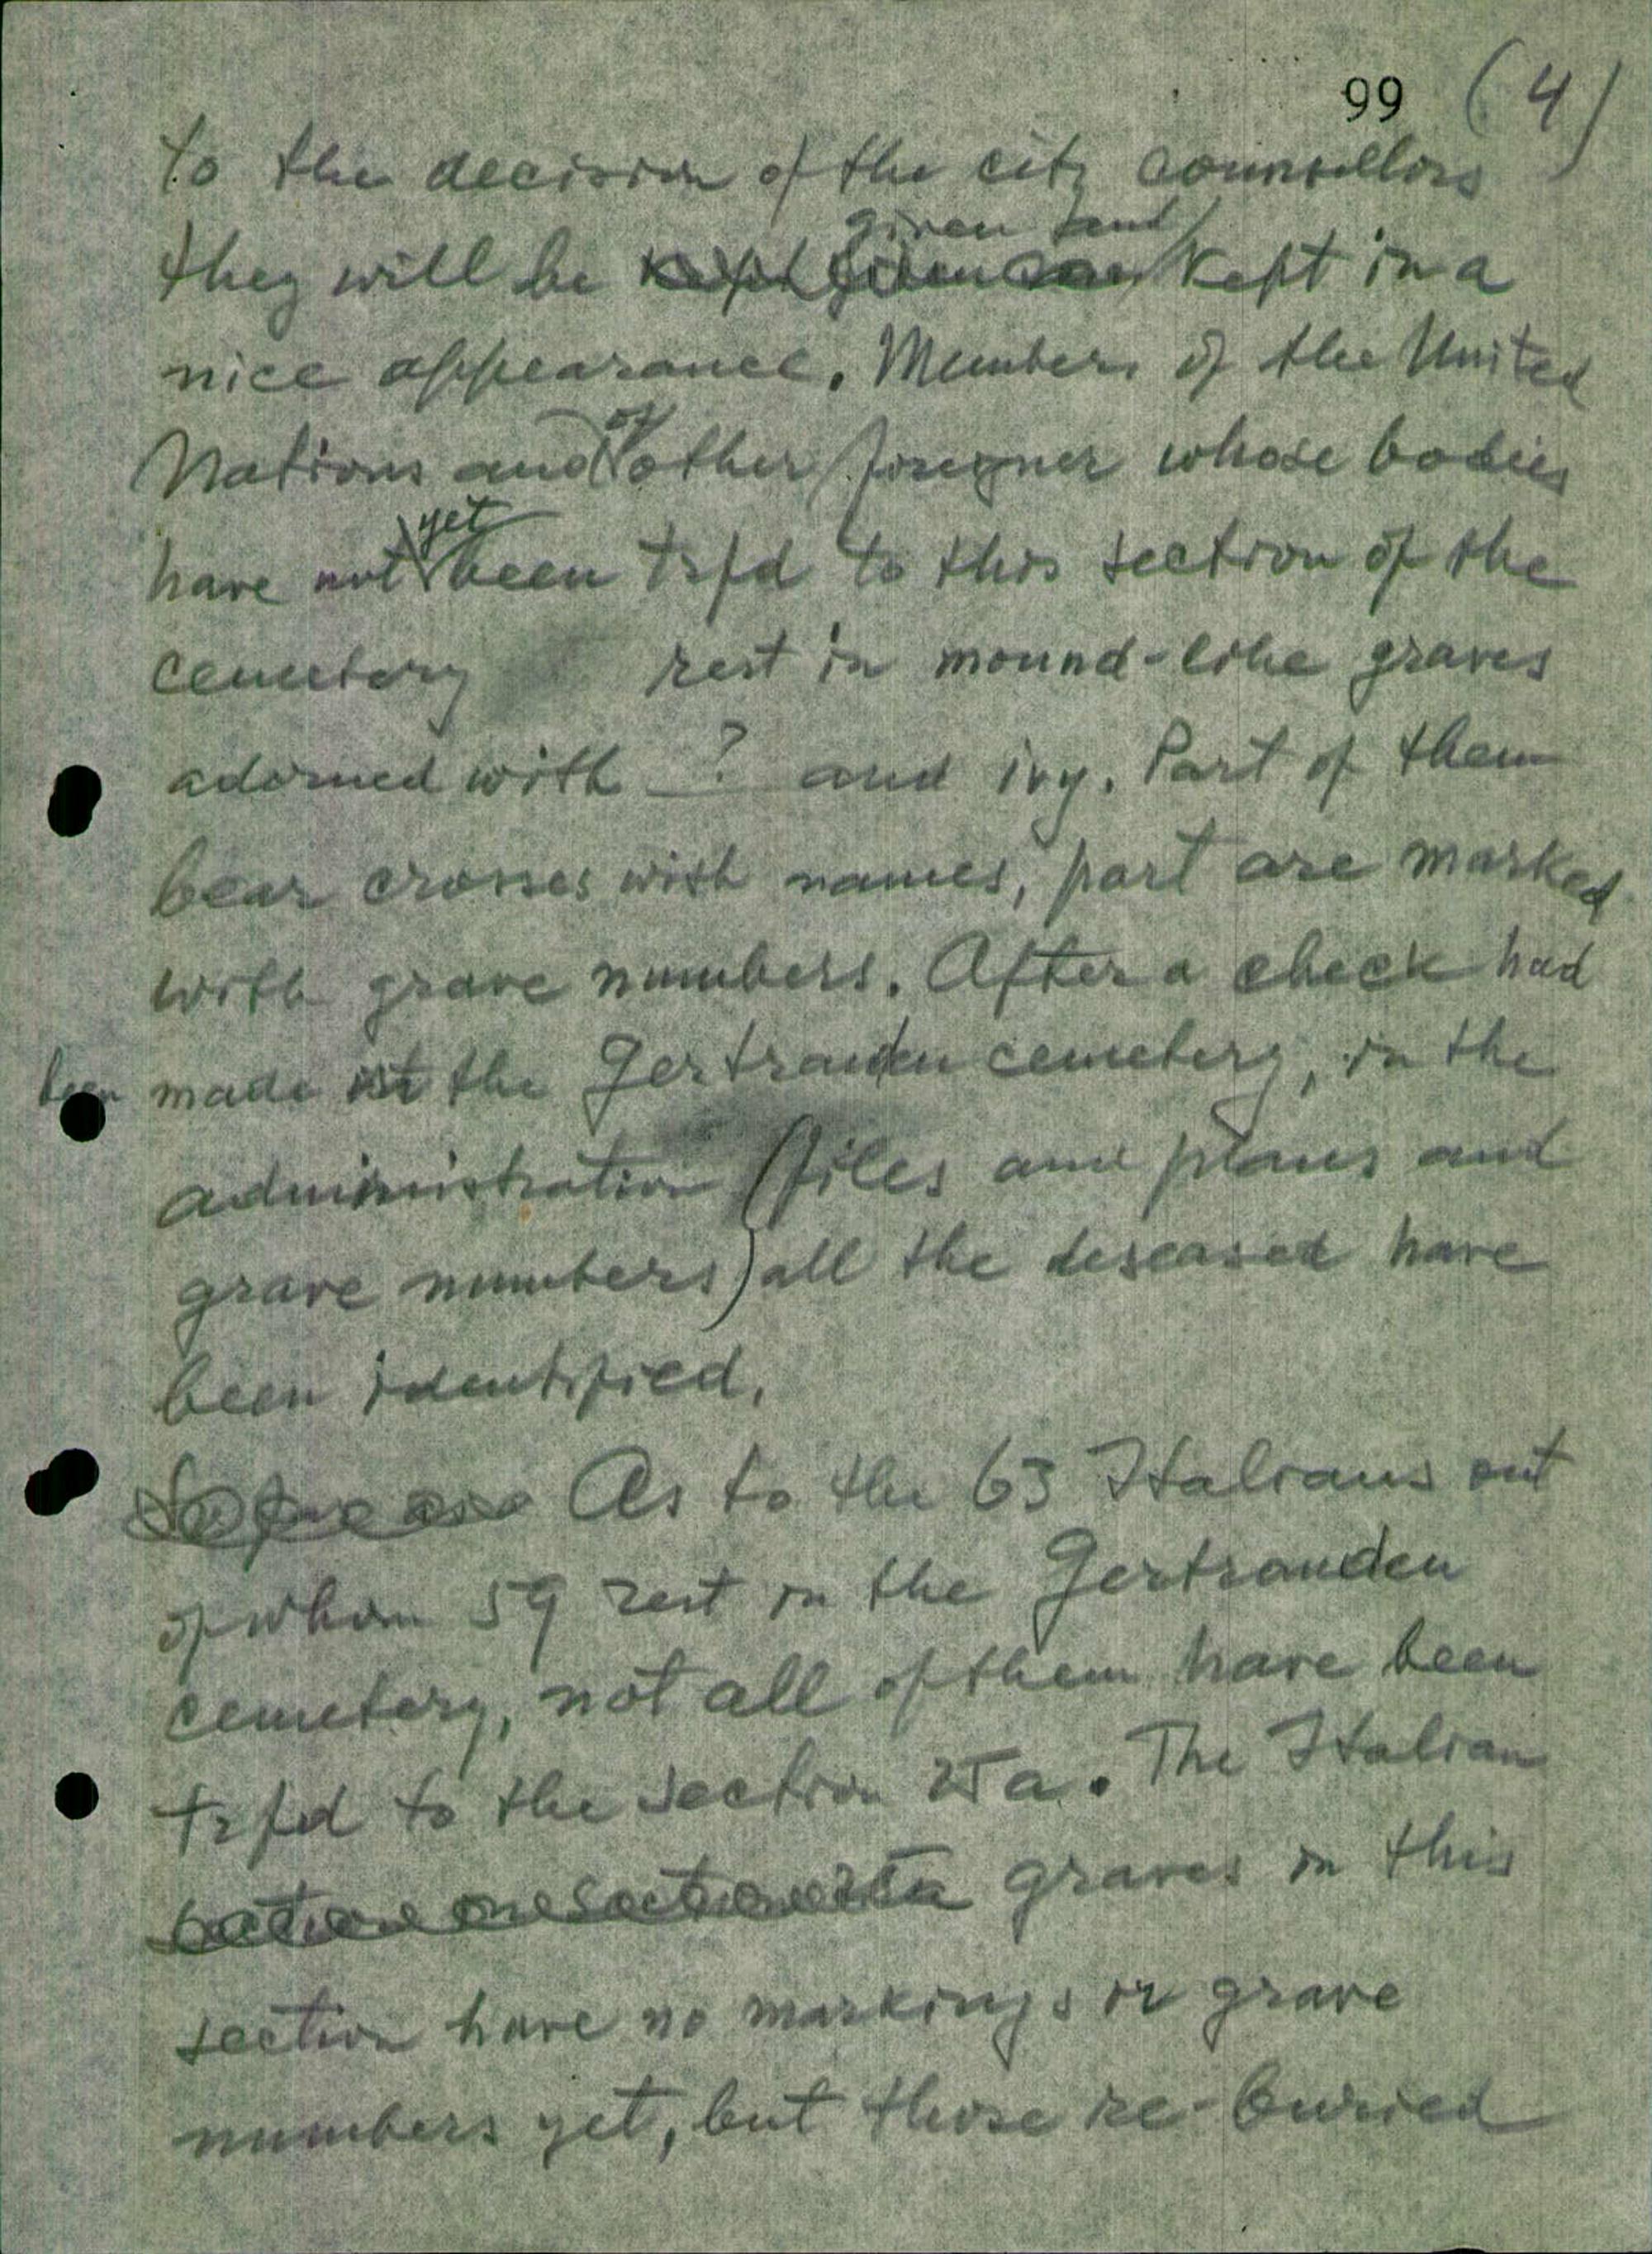 99 (4)
to the decision of the city counsellors
given and
they will be kept in a
nice appearance. Members of the United
Nations and of other foreigner whose bodies
have not yet been trfd to this section of the
cemetery rest in mound-like graves
adorned with ? and ivy. Part of them
bear crosses with names, part are marked
with grave numbers. After a check had
been made in the Gertrauden cemetery, in the
administration (files and plans and
grave numbers) all the deseased have
been identified.
As to the 63 Italians out
of whom 59 rest in the Gertrauden
cemetery, not all of them have been
trfd to the section 25a. The Italian
graves in this
section have no markings or grave
numbers yet, but those re-buried